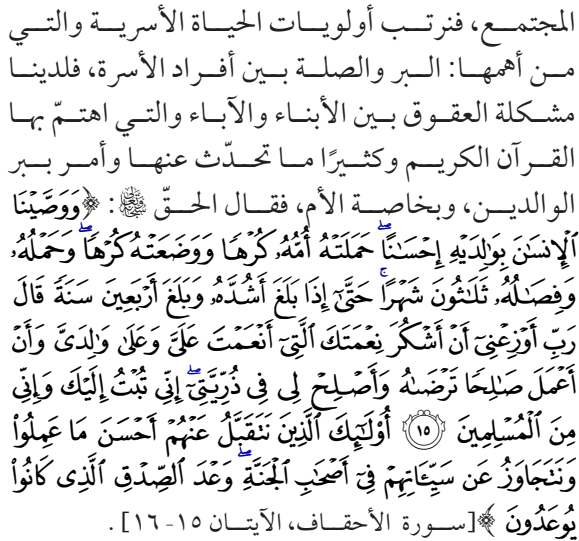 المجتمع، فنرتب أولويات الحياة الأسرية والتي
من أهمها: البر والصلة بين أفراد الأسرة، فلدينا
مشكلة العقوق بين الأبناء والآباء والتي اهتمّ بها
القرآن الكريم وكثيرًا ما تحدّث عنها وأمر ببر
الوالدين، وبخاصة الأم، فقال الحقّ ﷾: ﴿وَوَصَّيْنَا
ٱلْإِنسَٰنَ بِوَٰلِدَيْهِ إِحْسَٰنًاۖ حَمَلَتْهُ أُمُّهُۥ كُرْهًا وَوَضَعَتْهُ كُرْهًاۖ وَحَمْلُهُۥ
وَفِصَٰلُهُۥ ثَلَٰثُونَ شَهْرًاۚ حَتَّىٰٓ إِذَا بَلَغَ أَشُدَّهُۥ وَبَلَغَ أَرْبَعِينَ سَنَةً قَالَ
رَبِّ أَوْزِعْنِىٓ أَنْ أَشْكُرَ نِعْمَتَكَ ٱلَّتِىٓ أَنْعَمْتَ عَلَىَّ وَعَلَىٰ وَٰلِدَىَّ وَأَنْ
أَعْمَلَ صَٰلِحًا تَرْضَىٰهُ وَأَصْلِحْ لِى فِى ذُرِّيَّتِىٓۖ إِنِّى تُبْتُ إِلَيْكَ وَإِنِّى
مِنَ ٱلْمُسْلِمِينَ ۝١٥ أُو۟لَٰٓئِكَ ٱلَّذِينَ نَتَقَبَّلُ عَنْهُمْ أَحْسَنَ مَا عَمِلُوا۟
وَنَتَجَاوَزُ عَن سَيِّـَٔاتِهِمْ فِىٓ أَصْحَٰبِ ٱلْجَنَّةِۖ وَعْدَ ٱلصِّدْقِ ٱلَّذِى كَانُوا۟
يُوعَدُونَ﴾ [سورة الأحقاف، الآيتان ١٥-١٦].